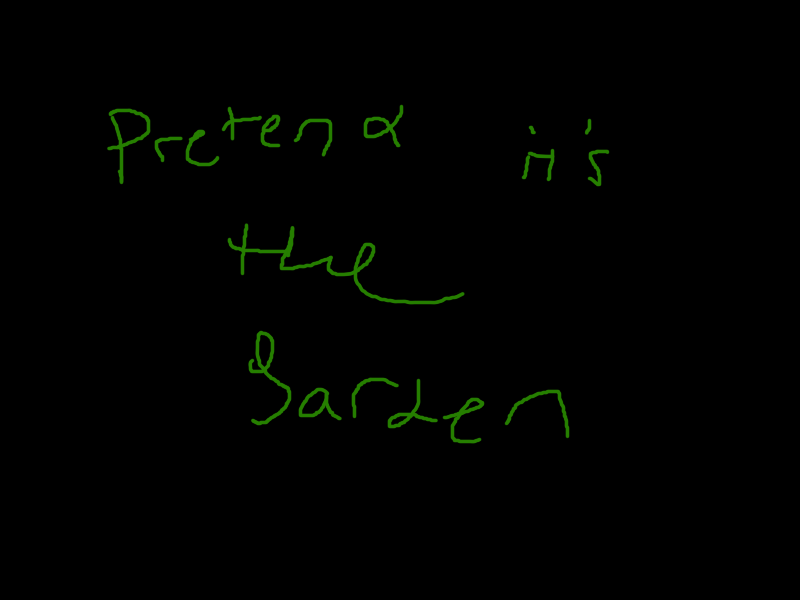 Pretend it's
the
Garden